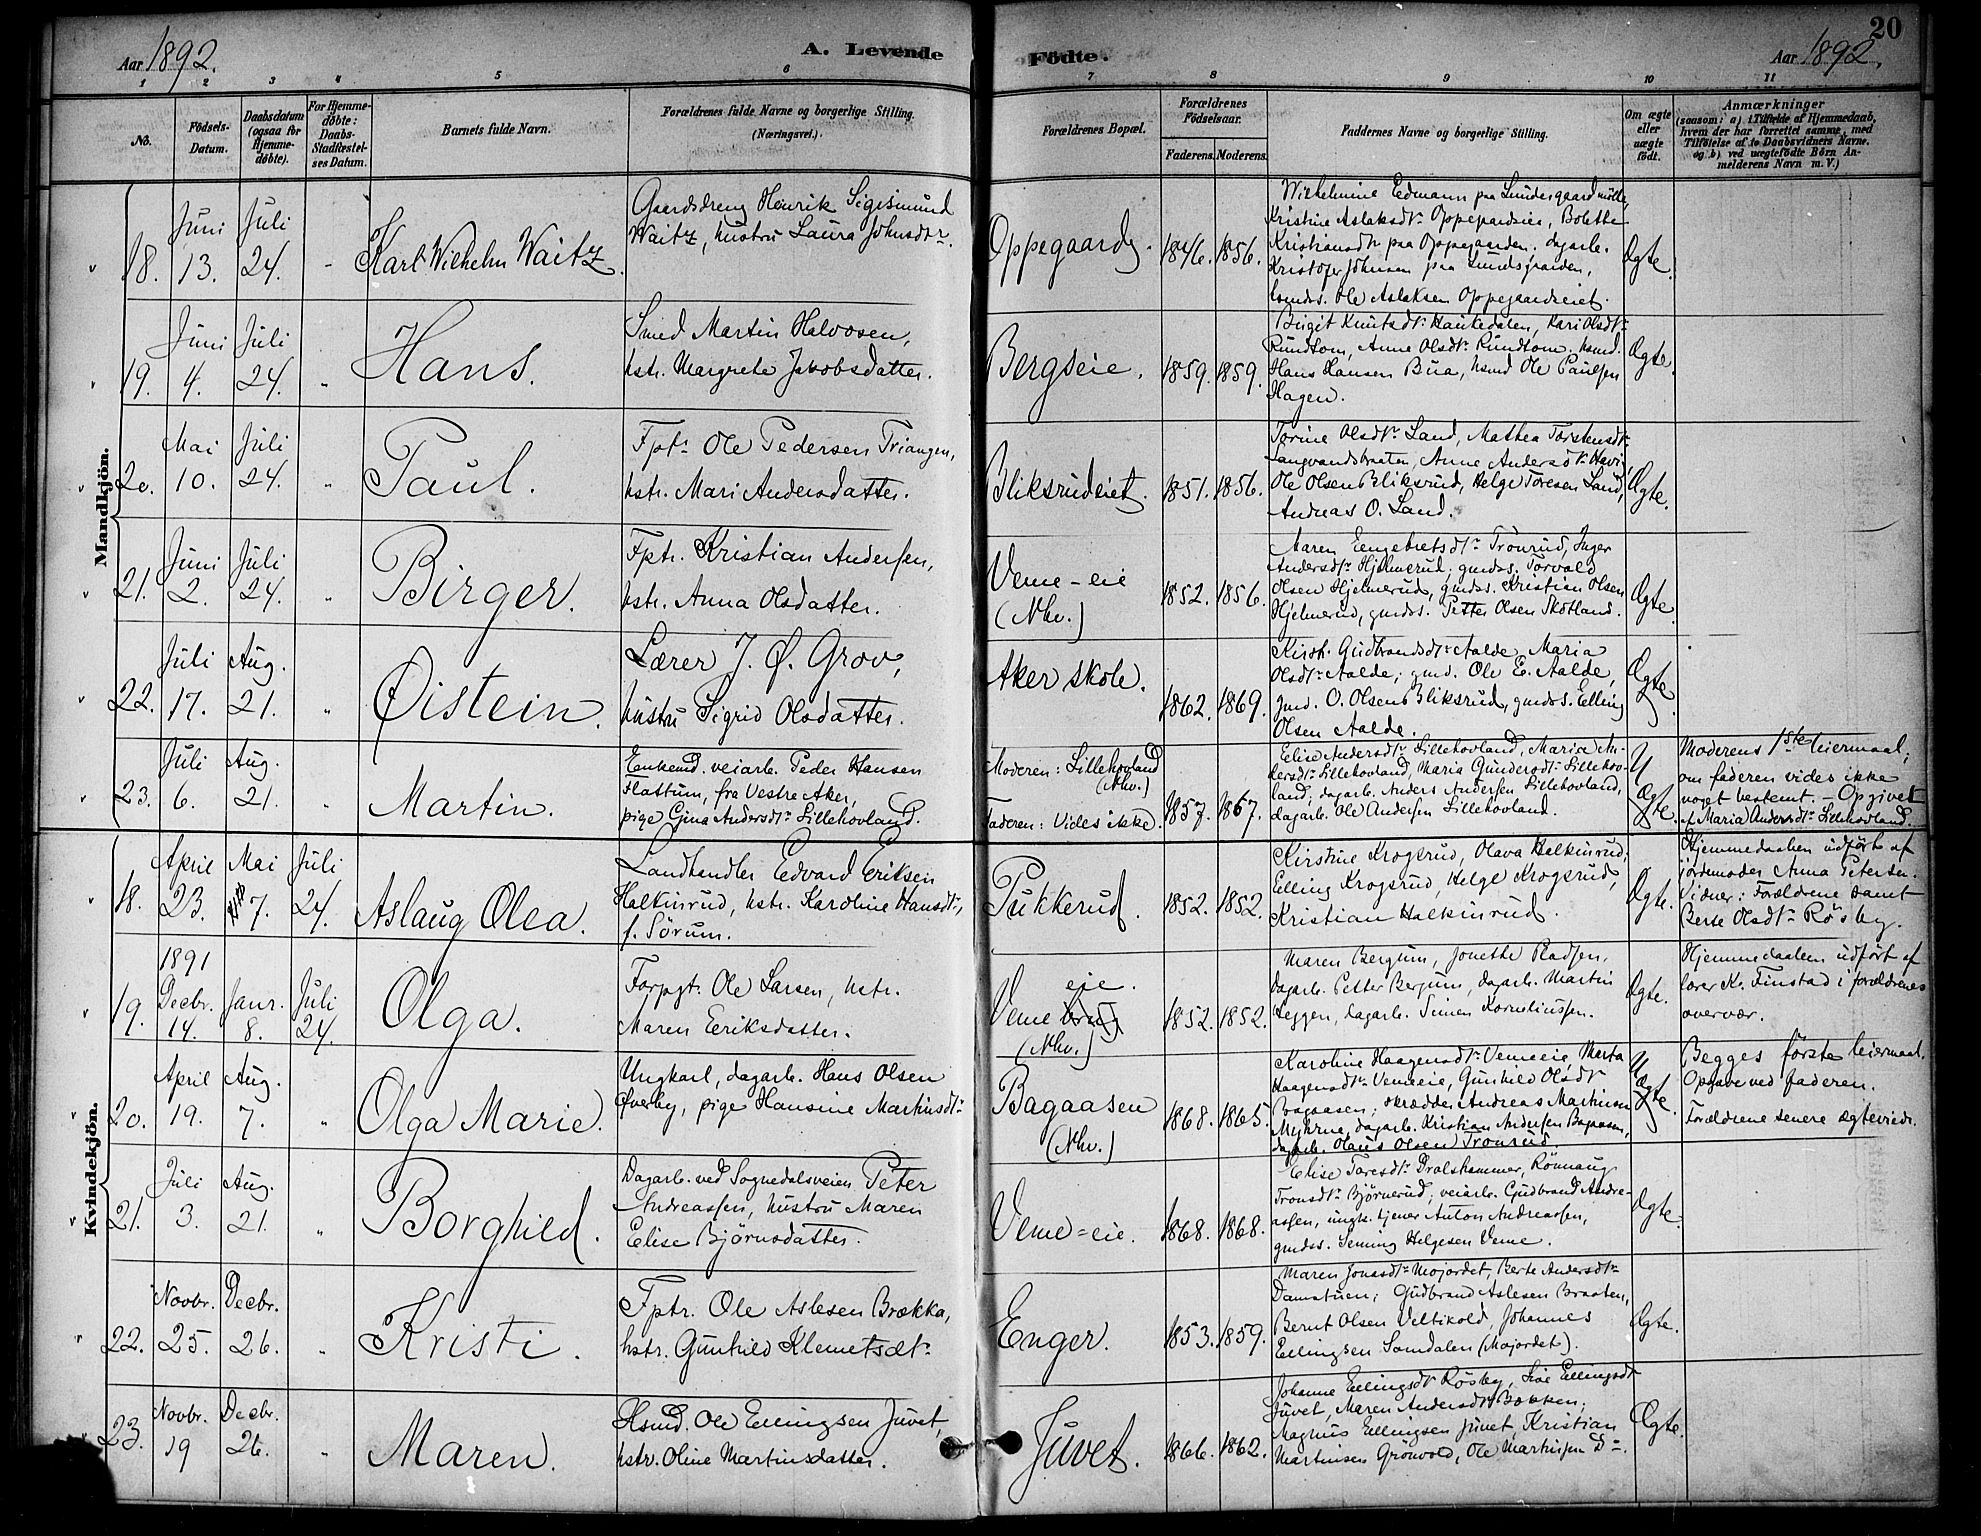 20
Aar 1892.
A. Levende
Födte.
Aar 1892.
1 2 3 4 5 6 7 8 9 10 11
No.
Födsels-Datum.
Daabsdatum (ogsaa for Hjemme-döbte).
For Hjemme-döbte: Daabs-Stadfæstelses Datum.
Barnets fulde Navn.
Forældrenes fulde Navne og borgerlige Stilling.
(Næringsvei.)
Forældrenes Bopæl.
Forældrenes Födselsaar.
Faderens. Moderens.
Faddernes Navne og borgerlige Stilling.
Om ægte eller uægte födt.
Anmærkninger
(saasom: a) i Tilfælde af Hjemmedaab,
hvem der har forrettet samme, med
Tilföielse af to Daabsvidners Navne.
og b) ved uægtefödte Börn An-
melderens Navn m. V.)
Mandkjön.
18.
Juni 13.
Juli 24.
Karl Wilhelm Waitz.
Gaardsdreng Henrik Sigismund
Waitz, hustru Laura Johnsdtr.
Oppegaard.
1846. 1856.
Wilhelmine Edmann paa Lundesgaard
Kristine Aslaksdtr Oppegardseie, Bolethe
Kristiansdtr paa Oppegaarden, dagarb.
Kristofer Johnsen paa Lundsgaarden,
Ole Aslaksen Oppegaardseiet.
Ægte.
19.
Juni 4.
Juli 24.
Hans.
Smed Martin Halvosen,
hstr. Margrete Jakobsdatter.
Bergseie.
1859. 1859.
Birgit Knutsdtr Haukedalen, Kari Olsdtr
Rundtom, Anne Olsdtr Rundtom, hsmd.
Hans Hansen Bua, hsmd Ole Paulsen
Hagen.
Ægte.
20.
Mai 10.
Juli 24.
Paul.
Fptr Ole Pedersen Triangen,
hstr. Mari Andersdatter.
Bliksrudeiet.
1851. 1856.
Torine Olsdtr Land, Mathea Torstensdtr
Langvandsbraaten, Anne Andersdtr
Ole Olsen Bliksrud, Helge Toresen Land,
Andreas O. Land.
Ægte.
21.
Juni 2.
Juli 24.
Birger.
Fptr. Kristian Andersen,
hstr. Anna Olsdatter.
Veme-eie
(Nhv.)
1852. 1856.
Maren Engebretsdtr Tronrud, Inger
Andersdtr Hjelmerud; gmds. Torvald
Olsen Hjelmerud, gmds. Kristian Olsen
Hjelmerud, gmds. Petter Olsen Skotland.
Ægte.
22.
Juli 17.
Aug. 21.
Øistein.
Lærer J. Ø. Grov,
hustru Sigrid Olsdatter.
Aker skole.
1862. 1869.
Kirsti Gudbrandsdtr Aalde, Maria
Olsdtr Aalde; gmd. Ole E. Aalde,
gmd. O. Olsen Bliksrud, gmds. Elling
Olsen Aalde.
Ægte.
23.
Juli 6.
Aug. 21.
Martin.
Enkemd. veiarb. Peder Hansen
Flattum, fra Vestre Aker,
pige Gina Andersdtr Lillehovland.
Moderen: Lillehovland
(Nhv.)
Faderen: Vides ikke.
1857. 1867.
Elise Andersdtr Lillehovland, Maria An-
dersdtr Lillehovland, Maria Gundersdtr Lillehov-
land; dagarb. Anders Andersen Lillehovland,
dagarb. Ole Andersen Lillehovland.
Uægte.
Moderens 1ste leiermaal;
om faderen vides ikke
noget bestemt. - Opgivet
af Maria Andersdtr Lillehovland.
Kvindekjön.
18.
April 23.
Mai 7.
Juli 24.
Aslaug Olea.
Landhandler Edvard Eriksen
Halkinrud, hstr. Karoline Hansdtr,
f. Sörum.
Pukkerud.
1852. 1852.
Kirstine Krogsrud, Olava Halkinrud;
Elling Krogsrud, Helge Krogsrud,
Kristian Halkinrud.
Ægte.
Hjemmedaaben udfört af
jordemoder Anna Petersen.
Vidner: Forældrene samt
Berte Olsdtr Rösby.
19.
1891
Decbr. 14.
Janr. 8.
Juli 24.
Olga.
Forpgt. Ole Larsen, hstr.
Maren Eriksdatter.
eie.
Veme
(Nhv.)
1852. 1852.
Maren Bergum, Jonette
dagarb. Petter Bergum, dagarb. Martin
Heggen, dagarb. Simen Korneliussen.
Ægte.
Hjemmedaaben udfört af
lærer Kr. Finstad i forældrenes
overvær.
20.
April 19.
Aug. 7.
Olga Marie.
Ungkarl, dagarb. Hans Olsen
Øverby, pige Hansine Martinsdtr
Bagaasen
(Nhv.)
1868. 1865.
Karoline Haagensdtr Vemeeie, Marta
Haagensdtr Vemeeie, Gunhild Olsdtr
Bagaasen; skrædder Andreas Martinsen
Myhrne, dagarb. Kristian Andersen Bagaasen,
dagarb. Olaus Olsen Tronrud.
Uægte.
Begges förste leiermaal.
Opgave ved faderen.
Forældrene senere ægteviede.
21.
Juli 3.
Aug. 21.
Borghild.
Dagarb. ved Sognedalsveien Peter
Andreassen, hustru Maren
Elise Björnsdatter.
Veme=eie.
1868. 1868.
Elise Toresdtr Dralshammer, Rönnaug
Tronsdtr Björnerud; veiarb. Gudbrand Andre-
assen, ungk. tjener Anton Andreassen,
gmds. Seming Helgesen Veme.
Ægte.
22.
Novbr. 25.
Decbr. 26.
Kristi.
Fptr. Ole Aslesen Brækka,
hstr. Gunhild Klemetsdtr
Enger.
1853. 1859.
Maren Jonasdtr Mojordet, Berte Andersdtr
Damstuen; Gudbrand Aslesen Braaten,
Bernt Olsen Veltikold, Johannes
Ellingsen Somdalen (Mojordet).
Ægte.
23.
Novbr. 19
Decbr. 26.
Maren.
Hsmd. Ole Ellingsen Juvet,
hstr. Oline Martinsdatter.
Juvet.
1866. 1862.
Johanne Ellingsdtr Rösby, Siri Ellingsdtr
Juvet, Maren Andersdtr Bakken;
Magnus Ellingsen Juvet, Kristian
Martinsen Grönvold, Ole Martinsen Do.
Ægte.